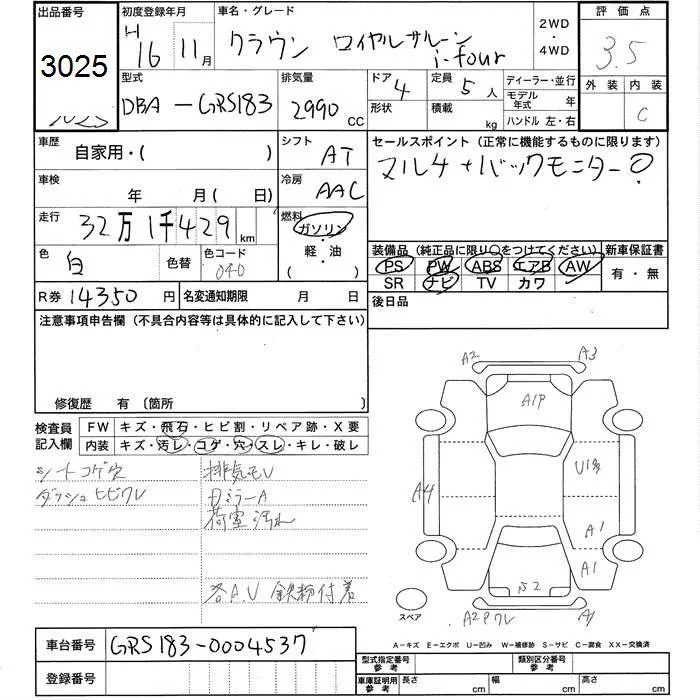 出品番号 初度登録年月 車名・グレード 2WD・4WD 評価点
3025 H16 11月 クラウン ロイヤルサルーン i-four 3.5
型式 排気量 ドア 4 定員 5人 ディーラー・並行 外装 内装
DBA-GRS183 2990 CC 形状 積載 kg モデル年式 年 C
ハンドル 左・右
車歴 自家用・( ) シフト AT セールスポイント (正常に機能するものに限ります)
マルチ+バックモニター
車検 年 月(日) 冷房 AAC
走行 32万1千429km 燃料 ガソリン・軽・油 ( )
色 白 色替 色コード 040
装備品 (純正品に限り○をつけてください) 新車保証書
PS PW ABS エアB AW 有・無
SR ナビ TV カワ
R券 14350円 名変通知期限 月 日 後日品
注意事項申告欄 (不具合内容等は具体的に記入して下さい)
修復歴 有 (箇所
検査員記入欄 FW キズ・飛石・ヒビ割・リペア跡・X要
内装 キズ・汚レ・コゲ・穴・スレ・キレ・破レ
シートコゲ穴 排気モレ
ダッシュヒビワレ 日ミラーA
荷室汚れ
各A.U 鉄粉付着
A2 A3
A1P
U1多
A4
A1
A1
S2
スペア A2Pワレ A1
車台番号 GRS183-0004537
登録番号
A-キズ E-エクボ U-凹み W-補修跡 S-サビ C-腐食 XX-交換済
型式指定番号 参考 類別区分番号 参考
車庫証明用 参考 長さ cm 幅 cm 高さ cm